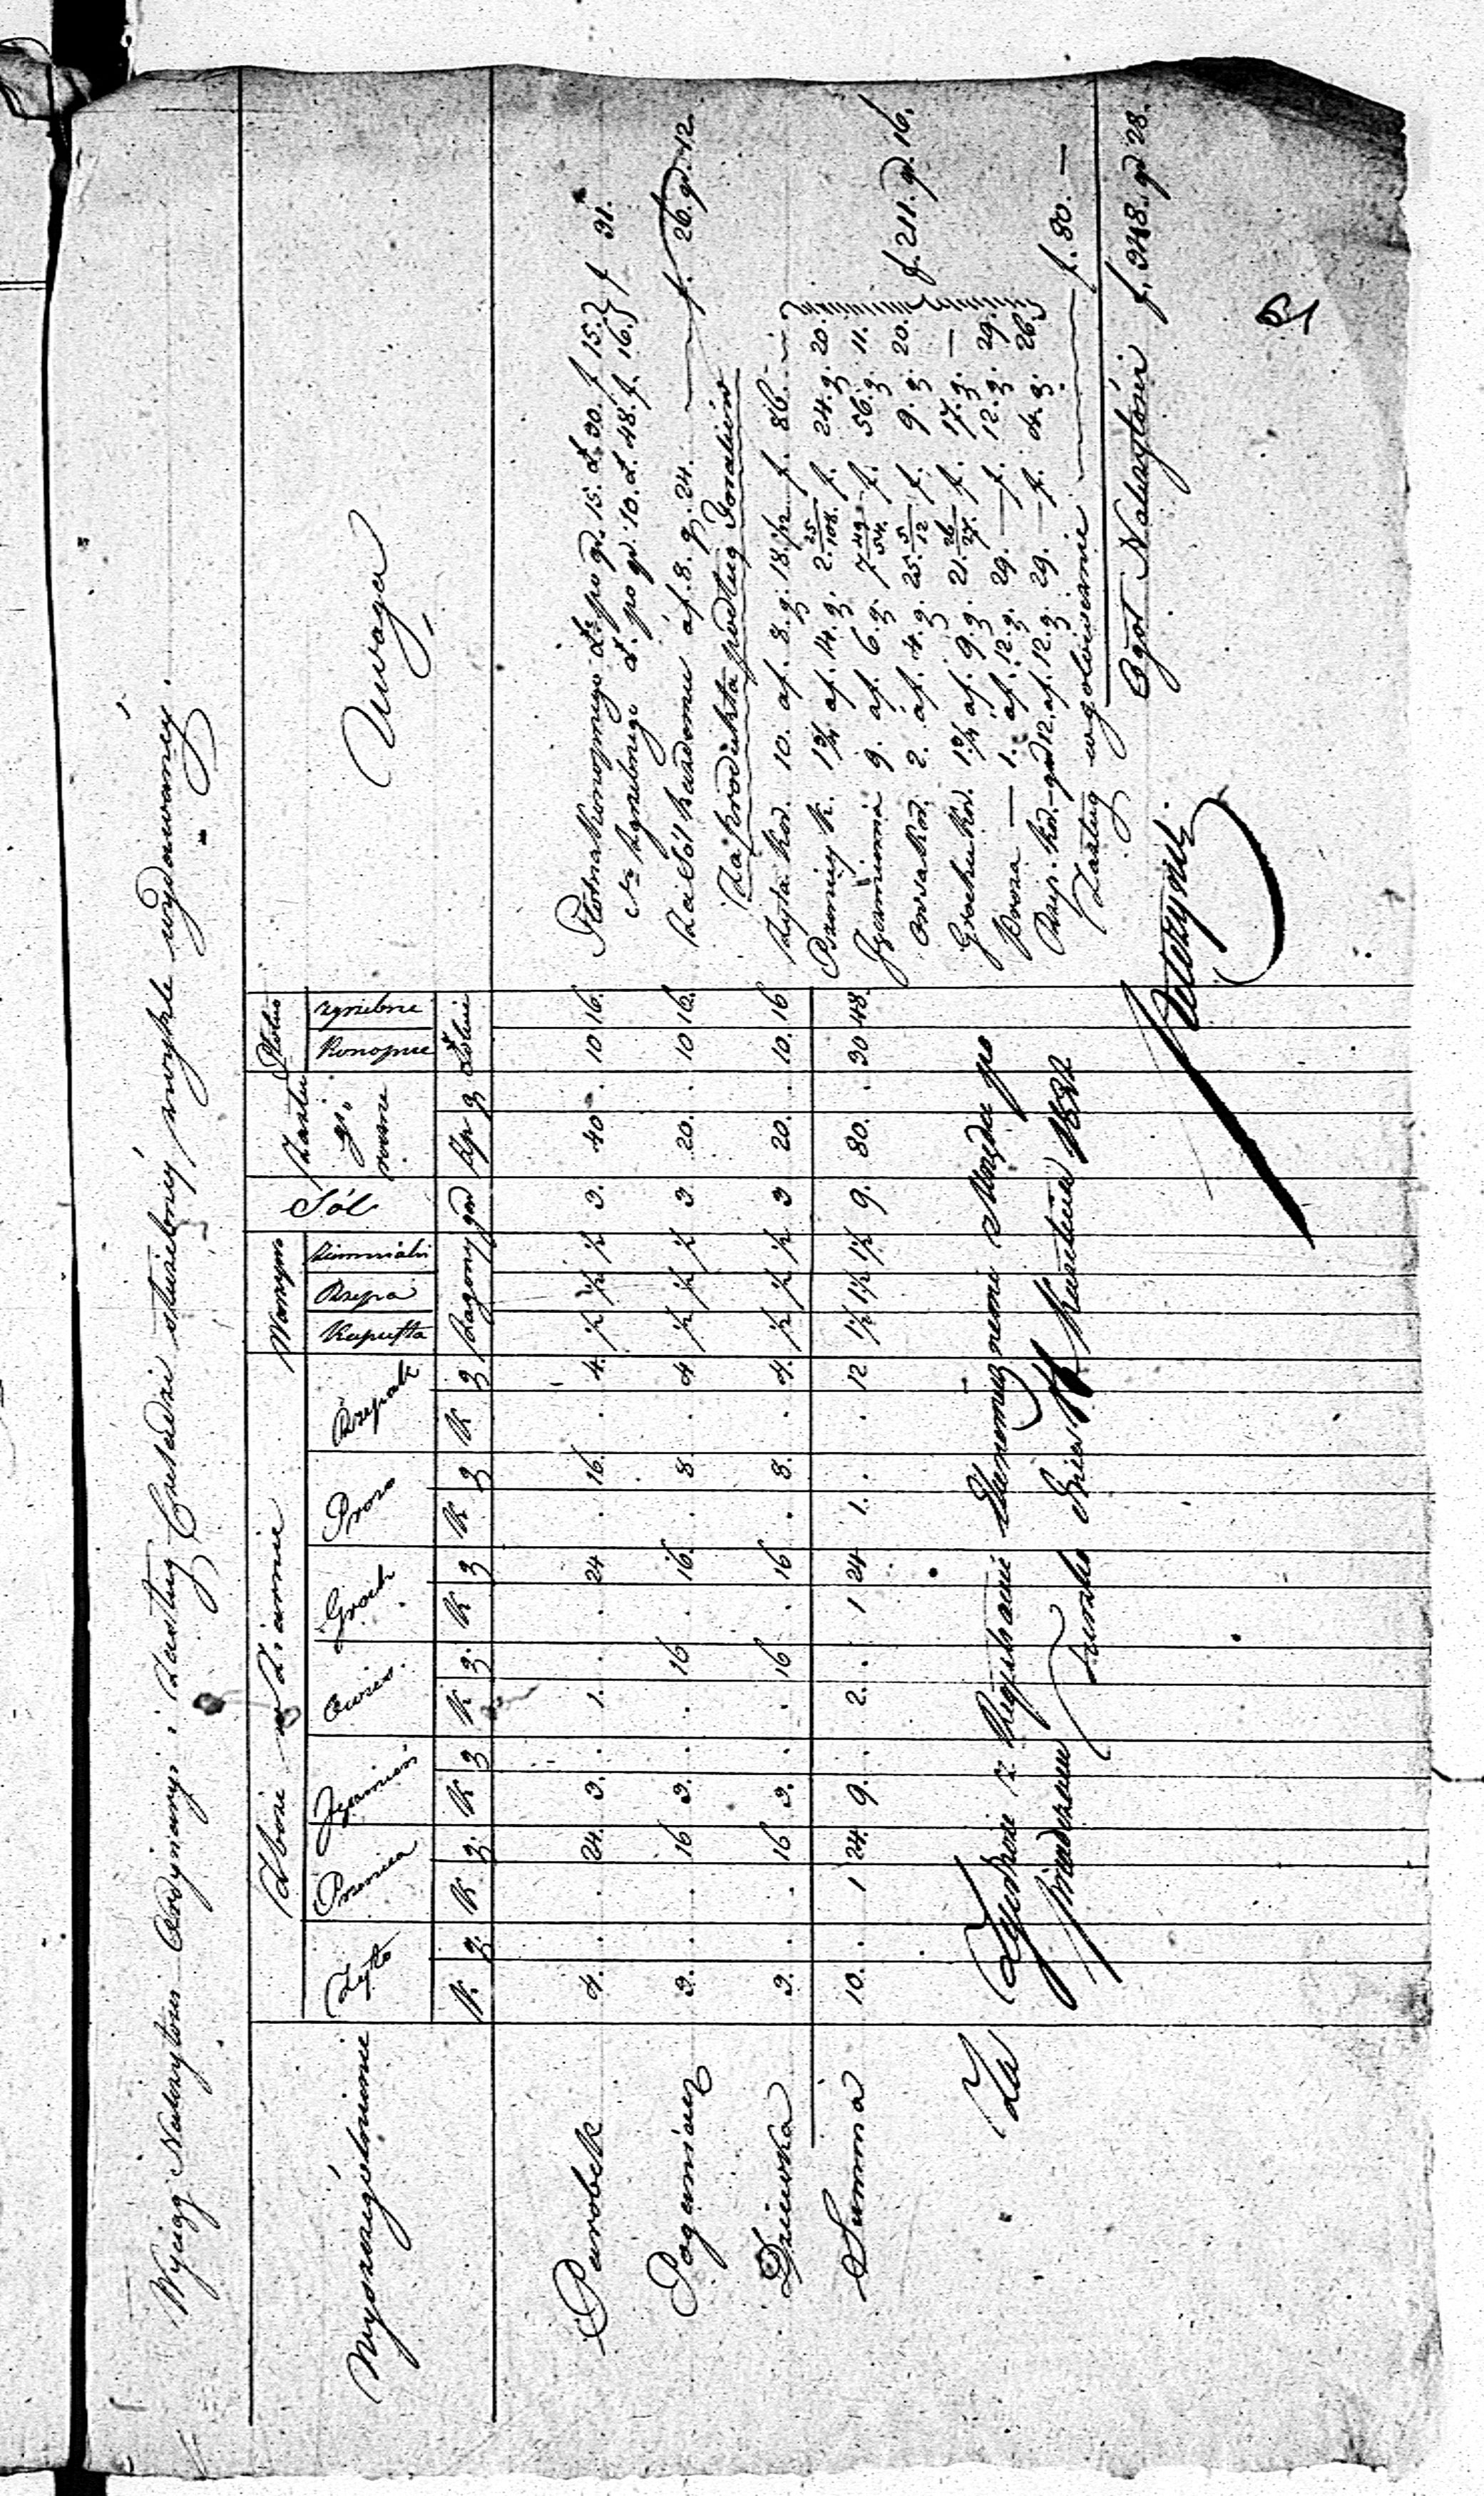 Wyciąg Należytości Ordynaryi i Zasług Czeladzi służebnéy zwykle wydawanéy.
Wyszczególnienie
Zboże w Ziarnie
Warzywo
Sól
Zasługi roczne
Płótno
Uwaga
Żyto
Pszenica
Jęczmień
Owies
Groch
Proso
Rzepak
Kapusta
Rzepa
Ziemniaki
Konopne
zgrzebne
K g. K g. K g K g. K g K g K g Zagony gar Złp g Łokcie
Parobek 4. . . 24. 3. . 1. . . 24 . 16. . 4. ½ ½ ½ 3. 40 . 10 16.
Poganiacz 3. . . 16 3. . . 16 . 16. . 8 . 4 ½ ½ ½ 3 20. . 10 16.
Dziewka 3. . . 16 3. . . 16 . 16 . 8. . 4. ½ ½ ½ 3 20. . 10. 16
Summa 10. . 1 24. 9. . 2. . 1 24 1. . . 12 1½ 1½ 1½ 9. 80. . 30 48.
Płótna Konopnego Ł. po gr. 15. Ł. 30. f 15. } f 31.
zgrzebnego Ł. po gr. 10. Ł. 48. f. 16. }
Za Sól każdemu á f. 8. g. 24. — f. 26. gr. 12.
Za produkta podług
Żyta Kor. 10. á f. 8. g. 18 7/12 f. 86. —
Pszenicy K. 1¾ á f. 14. g. 2. 25/108. f. 24. g. 20.
Jęczmienia 9. á f. 6 g. 7 49/54. f. 56. g. 11.
Owsa Kor. 2. á f. 4. g. 25. 5/12 f. 9. g. 20.
Grochu Kor. 1¾ á f. 9. g. 21. 26/27. f. 17. g. —
Prosa — 1. á f. 12. g. 29. — f. 12. g. 29.
Rzep. Kor. — gar 12. á f. 12. g. 29. — f. 4. g. 26.
f. 211. gr. 16.
Zasług w gotowiznie — f. 80. —
Ogół Należytości f. 348. gr 28.
Za Zgodność z
dnia 1822
51